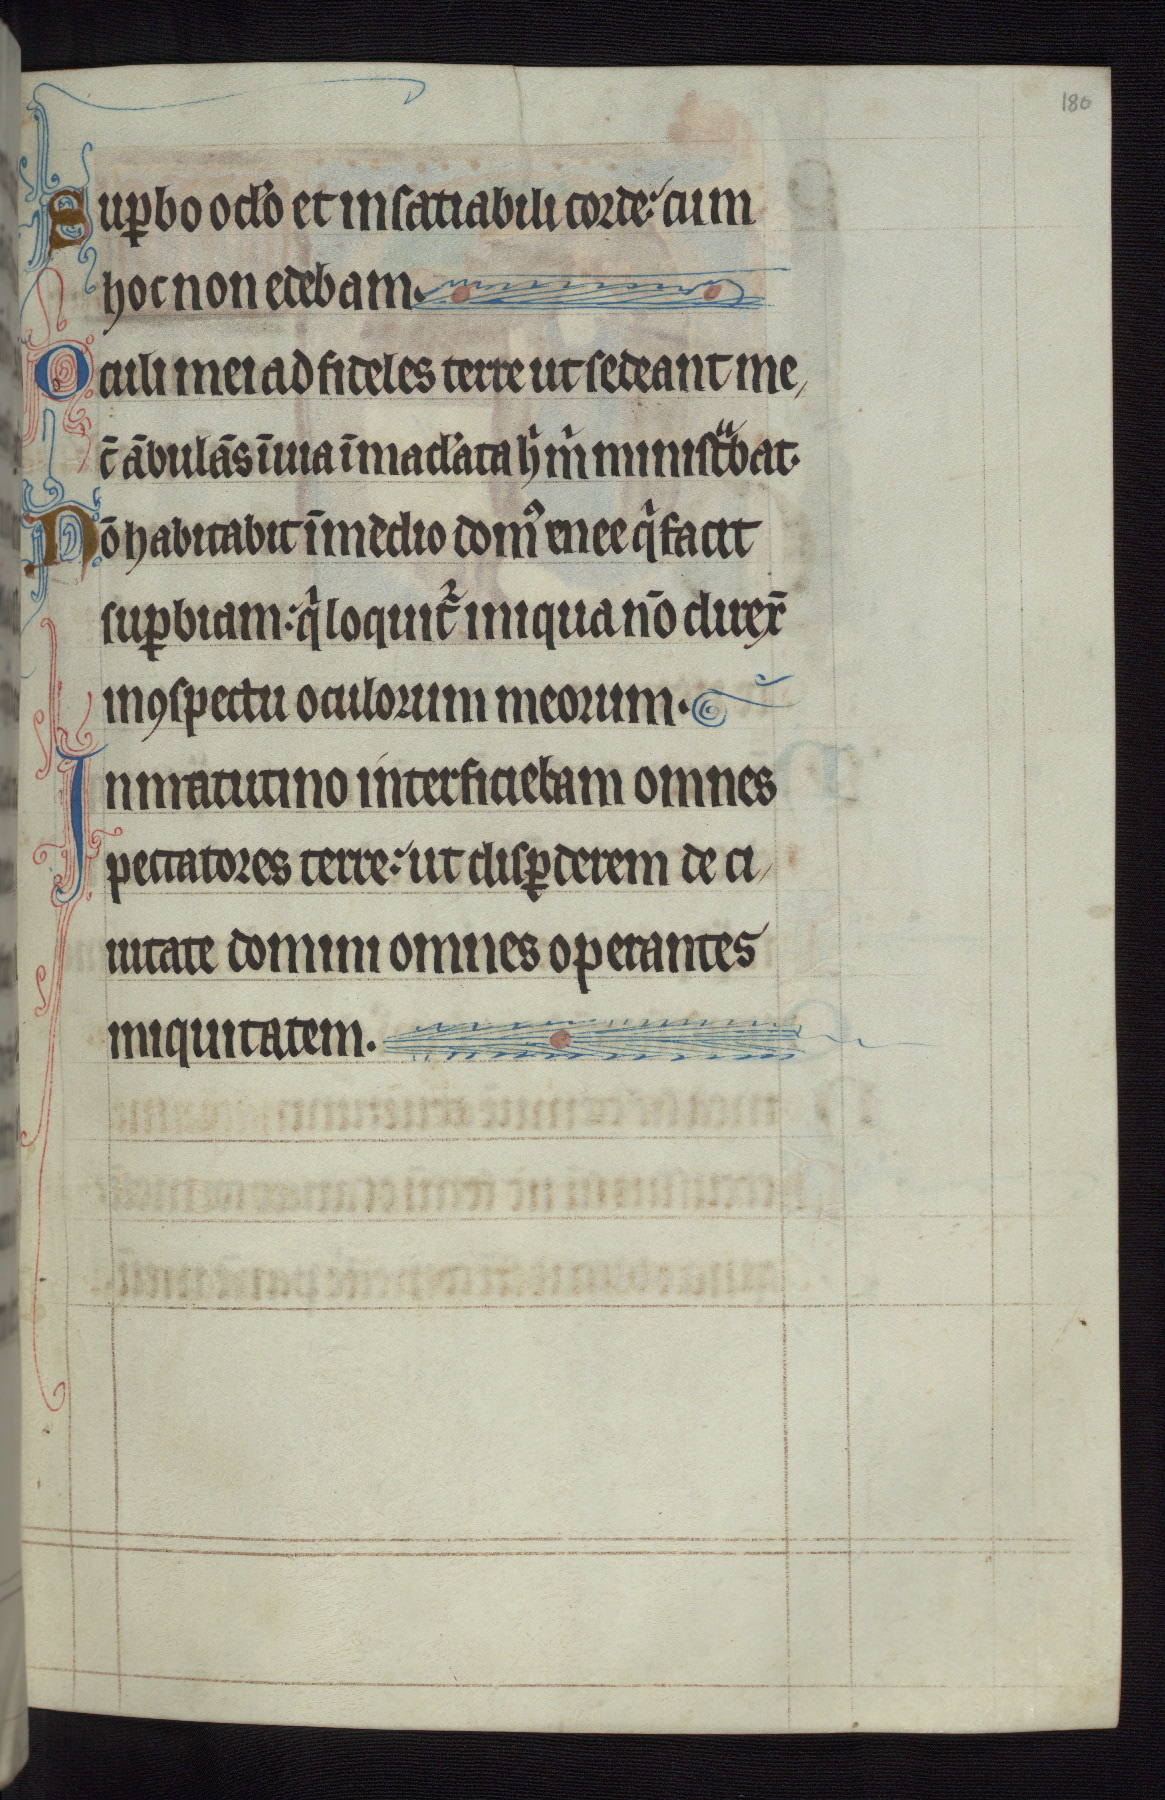 180
Sup̲bo oc̄lo et insatiabili corde: cum
hoc non edebam.
Oculi mei ad fideles terre ut sedeant me
c̄ ābulās ī uia īmac̄lata hͥ mͥ ministͣbat.
Nō habitabit ī medio domꝰ mee qͥ facit
sup̲biam: qͥ loquit᷑ iniqua nō direx̄
in ꝯspectu oculorum meorum.
In matutino interficiebam omnes
peccatores terre: ut disp̲derem de ci
uitate domini omnes operantes
iniquitatem.